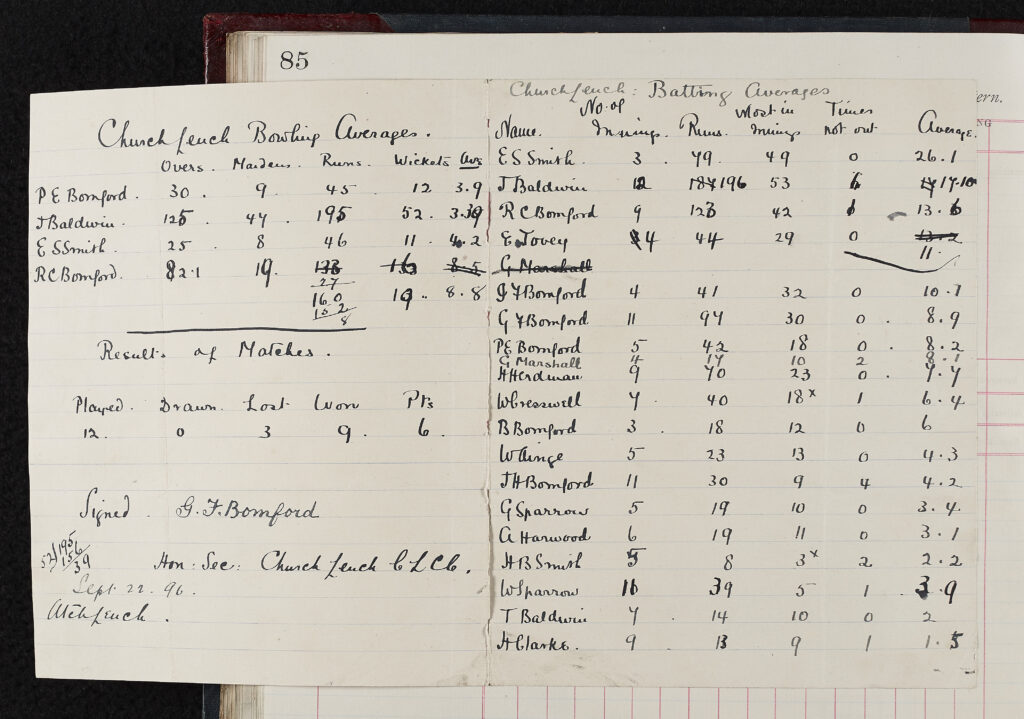 85
Church Lench Bowling Averages.
Overs. Maidens. Runs. Wickets Avs
P E Bomford. 30. 9. 45 12 3.9
J Baldwin. 125 . 47 . 195 52. 3.39
E S Smith. 25 . 8 46 11. 4.2
R C Bomford. 82.1 19.
27
160 19.. 8.8
152
8
Results of Matches.
Played. Drawn. Lost Won Pts
12. 0 3 9. 6.
Signed. G. F. Bomford
52/195
156
39
Hon: Sec: Church Lench C L C C.
Sept 22. 96.
Atch Lench.
Church Lench: Batting Averages
No. of Most in Times
Name. Innings. Runs. Innings not out Average.
E S Smith. 3. 79. 49 0 26.1
J Baldwin 12 196 53 17.10
R C Bomford 9 123 42 13.6
E Tovey 4 44 29 0 13.2
11.
G Marshall
J F Bomford 4 41 32 0 10.1
G F Bomford 11 97 30 0. 8.9
P E Bomford 5 42 18 0. 8.2
G Marshall 4 17 10 2 8.1
H Herdman 9 70 23 0. 7.7
W Cresswell 7. 40 18x 1 6.4
B Bomford 3. 18 12 0 6
W Ainge 5 23 13 0 4.3
J H Bomford 11 30 9 4 4.2
G Sparrow 5 19 10 0 3.4
A Harwood 6 19 11 0 3.1
H B Smith 5 8 3x 2 2.2
W Sparrow 39 5 1 3.9
T Baldwin 7. 14 10 0 2
H Clarke. 9 13 9 1 1.5
ern.
NG